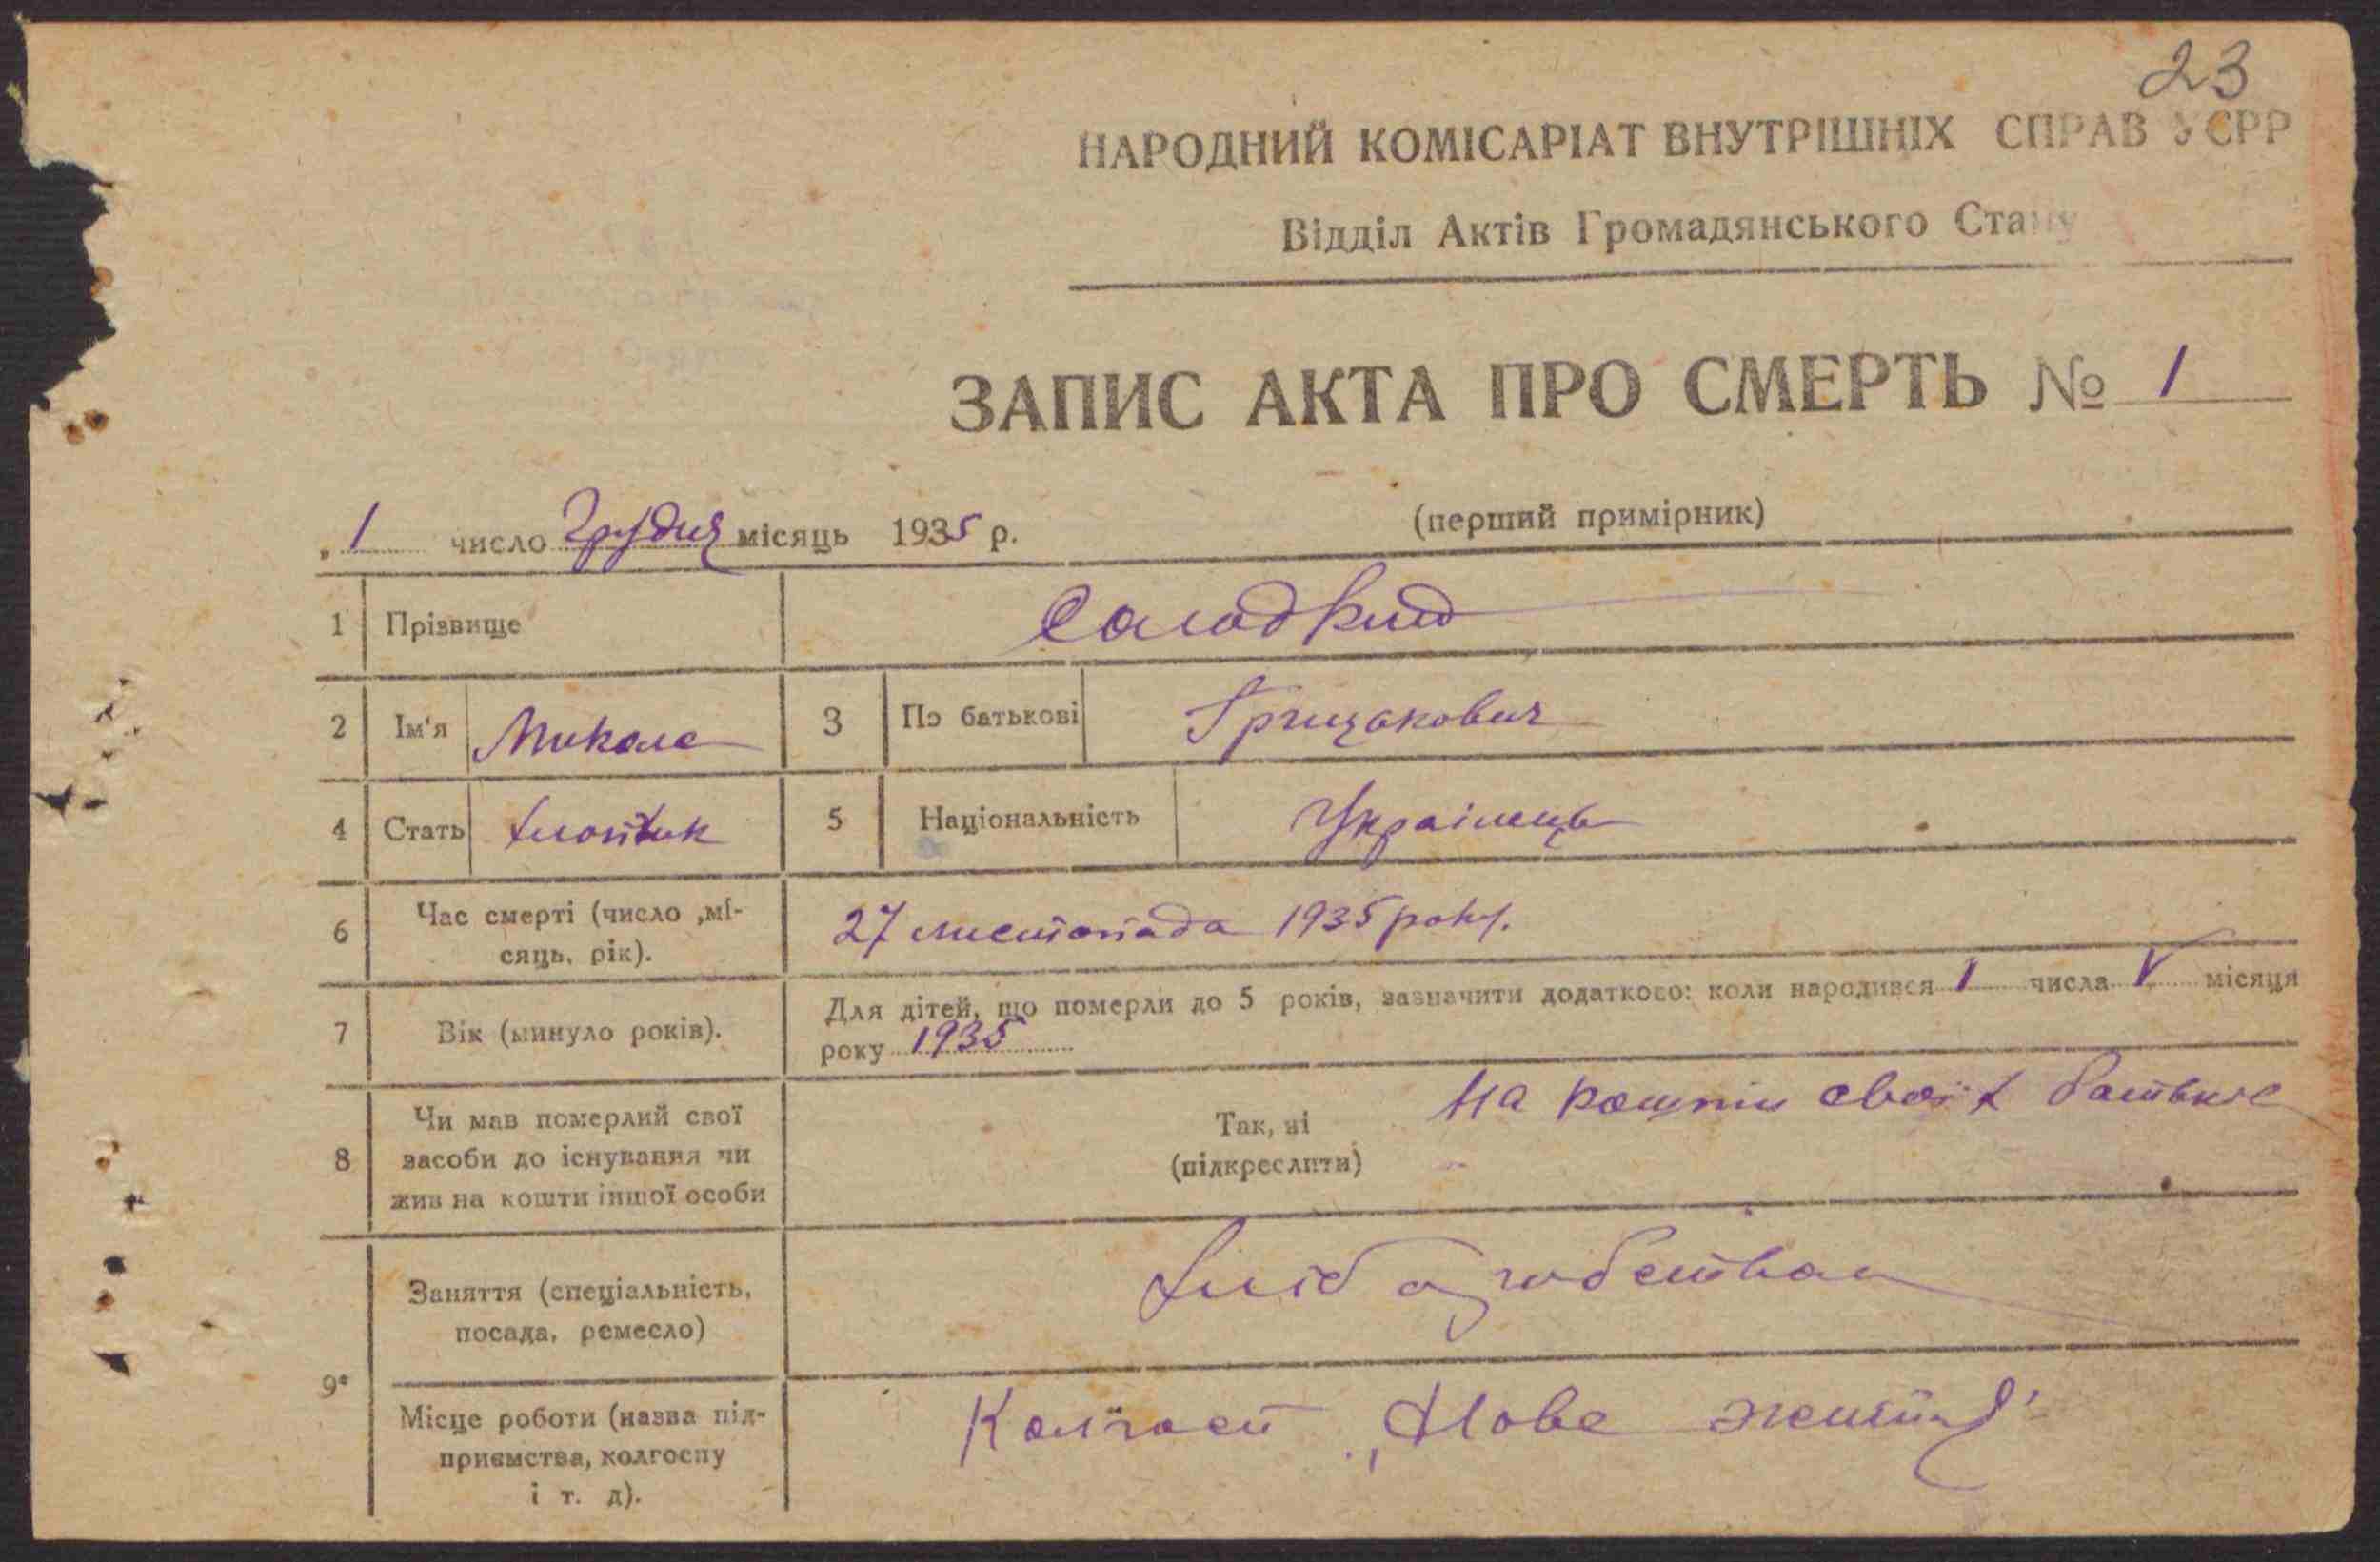 23
НАРОДНИЙ КОМІСАРІАТ ВНУТРІШНІХ СПРАВ УСРР
Відділ Актів Громадянського Стану
ЗАПИС АКТА ПРО СМЕРТЬ № 1
(перший примірник)
„ 1 число Грудня місяць 1935 р.
1 Прізвище
2 Ім'я Микола 3 По батькові
4 Стать 5 Національність Українець
6 Час смерті (число ,мі-
сяць, рік).
27 листопада 1935 року.
7 Вік (минуло років).
Для дітей, що померли до 5 років, зазначити додатково: коли народився 1 числа V місяця
року 1935
8 Чи мав померлий свої
засоби до існування чи
жив на кошти іншої особи
Так, ні
(підкреслити)
на кошти своїх
9
Заняття (спеціальність,
посада, ремесло)
Місце роботи (назва під-
приємства, колгоспу
і т. д).
Колгосп „Нове життя"